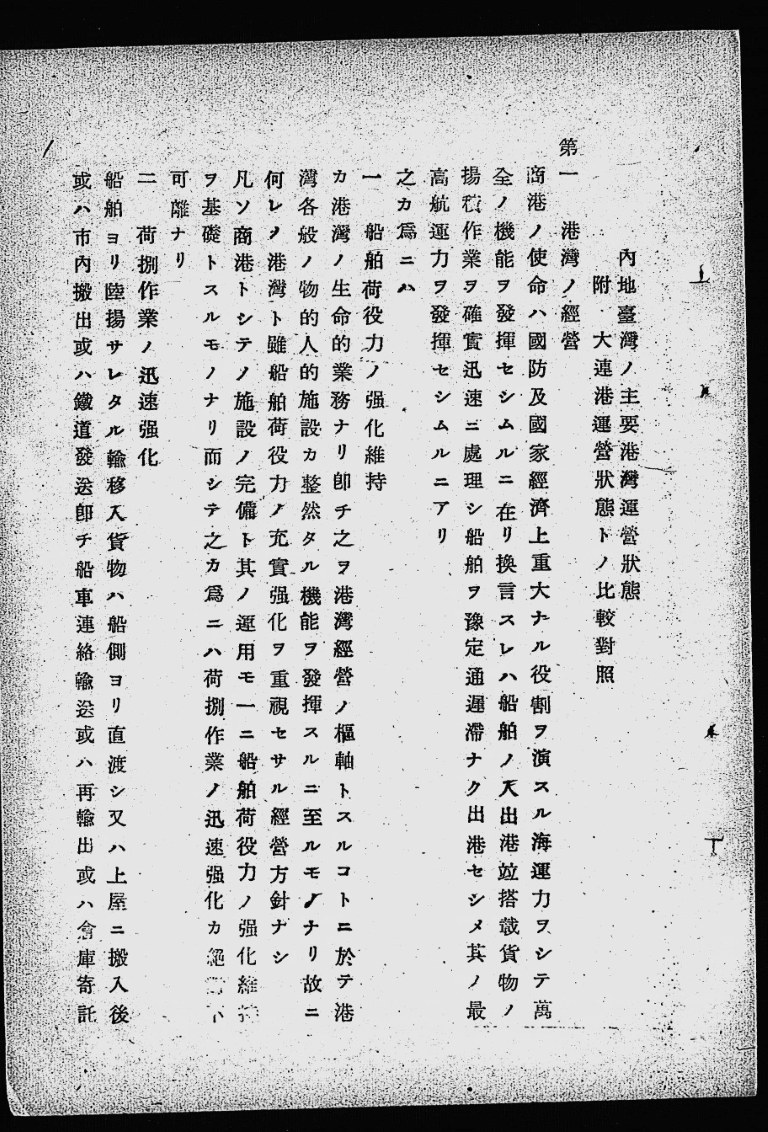 內地臺灣ノ主要港灣運營狀態
附　大連港運營狀態トノ比較對照
第一　港灣ノ經營
商港ノ使命ハ國防及國家經濟上重大ナル役割ヲ演スル海運力ヲシテ萬
全ノ機能ヲ發揮セシムルニ在リ換言スレハ船舶ノ入出港竝搭載貨物ノ
揚積作業ヲ確實迅速ニ處理シ船舶ヲ豫定通遲滯ナク出港セシメ其ノ最
高航運力ヲ發揮セシムルニアリ
之カ爲ニハ
一　船舶荷役力ノ强化維持
カ港灣ノ生命的業務ナリ卽チ之ヲ港灣經營ノ樞軸トスルコトニ於テ港
灣各般ノ物的人的施設カ整然タル機能ヲ發揮スルニ至ルモノナリ故ニ
何レノ港灣ト雖船舶荷役力ノ充實强化ヲ重視セサル經營方針ナシ
凡ソ商港トシテノ施設ノ完備ト其ノ運用モ一ニ船舶荷役力ノ强化維持
ヲ基礎トスルモノナリ而シテ之カ爲ニハ荷捌作業ノ迅速强化カ絕對不
可離ナリ
二　荷捌作業ノ迅速强化
船舶ヨリ陸揚サレタル輸移入貨物ハ船側ヨリ直渡シ又ハ上屋ニ搬入後
或ハ市內搬出或ハ鐵道發送卽チ船車連絡輸送或ハ再輸出或ハ倉庫寄託